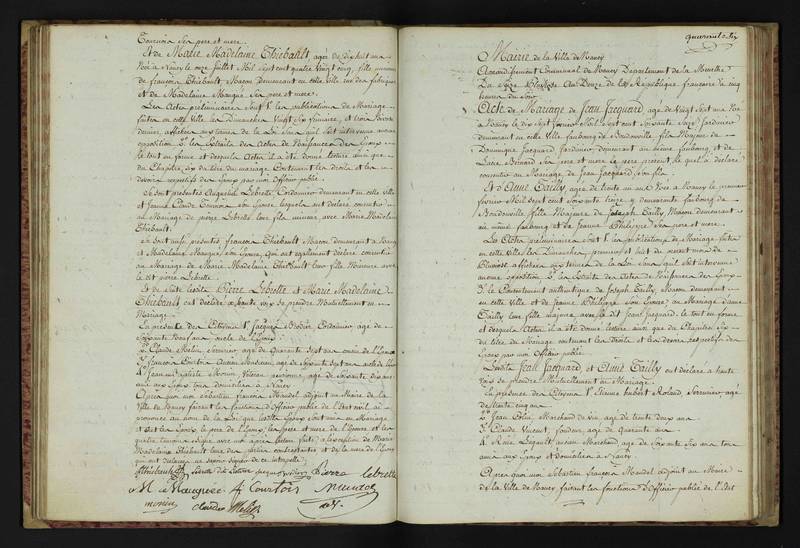 Tournoin Ses pere et mere.
Et de Marie Madelaine Thiebault, agée de dix huit ans
Née à Nancy le onze Juillet Mil Sept cent quatre vingt cinq, fille mineure
de françois Thiebault, Macon demeurant en cette ville rue des fabriques
et de Madelaine Mangin Ses pere et mere.
Les Actes preliminaires Sont 1° les publications de Mariage
faites en cette Ville les Dimanches Vingt Six frimaire, et trois Nivôse
dernier, affichées aux termes de la Loi Sans qu'il soit intervenu aucune
opposition 2° les Extraits des Actes de Naissances des Epoux
le tout en forme et desquels Actes il a été donné lecture ainsi que
du Chapitre Six du titre du mariage Contenant les droits et les
devoirs respectifs des Epoux par nous Officier public.
Se sont présentés Augustin Lebrette, Cordonnier demeurant en cette Ville
et Jeanne Claude Son Epouse lesquels ont déclaré consentir
au Mariage de pierre Lebrette leur fils mineur avec Marie Madelaine
Thiebault.
Se sont aussi présentés, françois Thiebault Macon demeurant à Nancy
et Madelaine Mangin, Son Epouse, qui ont également déclaré consentir
au Mariage de Marie Madelaine Thiebault leur fille Mineure avec
le dit pierre Lebrette.
Et de Suite lesdits Pierre Lebrette et Marie Madelaine
Thiebault ont déclaré à haute voix Se prendre Mutuellement en
Mariage.
En présence des Citoyens 1° Jacques Cordonnier, agé de
Soixante Neuf ans oncle de l'Epoux
2° Claude agé de Quarante Sept ans cousin de l'Epoux
3° françois Courtois agé de Soixante Sept ans
4° Jean agé de Soixante dix ans
amis aux Epoux tous domiciliés à Nancy
Après quoi nous Sébastien françois Mandel adjoint au Maire de la
Ville de Nancy faisant les fonctions d'Officier public de l'Etat civil
prononcé au nom de la Loi que lesdits Epoux sont unis en Mariage
et ont les Epoux, le pere de l'Epoux, les pere et mere de l'Epouse et les
quatre témoins Signé avec nous après lecture faite, à l'exception de Marie
Madelaine Thiebault l'une des parties contractantes et de la mere de l'Epoux
qui ont déclaré ne savoir Signer de ce interpellés
Thiebault Pierre Lebrette
M Courtois
Claude Mandel
quarant Six
Mairie de la Ville de Nancy
Arrondissement Communal de Nancy Département de la Meurthe
Du Seize Pluviôse An Douze de la République française à cinq
heures du Soir
Acte de Mariage de Jean Jacquard, agé de Vingt Sept ans Né
à Nancy le dix Sept Mil Sept cent Soixante Seize Jardinier
demeurant en cette Ville faubourg de Boudonville, fils Majeur de
Dominique Jacquard Jardinier demeurant au même faubourg, et de
Lucie Bernard Ses pere et mere le pere présent lequel a déclaré
consentir au Mariage de Jean Jacquard Son fils.
Et d'Anne Tailly, agée de trente un ans Née à Nancy le premier
fevrier Mil Sept cent Soixante treize y demeurante faubourg de
Boudonville, fille Majeure de Joseph Tailly, Macon demeurant
au même faubourg et de Jeanne Philippe Ses pere et mere.
Les Actes préliminaires sont 1° les publications de Mariage faites
en cette Ville les Dimanches premier et huit du présent mois de
Pluviose affichées aux termes de la Loi Sans qu'il soit intervenu
aucune opposition 2° les Extraits des Actes de Naissances des Epoux
3° le Consentement authentique de Joseph Tailly Macon demeurant
en cette Ville et de Jeanne Philippe Son Epouse, au Mariage d'anne
Tailly leur fille majeure avec le dit Jean Jacquard, le tout en forme
et desquels Actes il a été donné lecture ainsi que du Chapitre Six
du titre du Mariage contenant les droits et les devoirs respectifs des
Epoux par nous Officier public.
Lesdits Jean Jacquard, et Anne Tailly ont déclaré à haute
voix Se prendre Mutuellement en Mariage.
En présence des Citoyens 1° Etienne hubert Roland, Serrurier agé
de trente cinq ans
2° Jean Marchand de vin, agé de trente deux ans
3° Claude Vincent, fondeur, agé de Quarante ans
4° René Marchand, agé de Soixante Six ans tous
amis aux Epoux et domiciliés à Nancy.
Après quoi nous Sébastien françois Mandel adjoint au Maire
de la Ville de Nancy faisant les fonctions d'Officier public de l'Etat